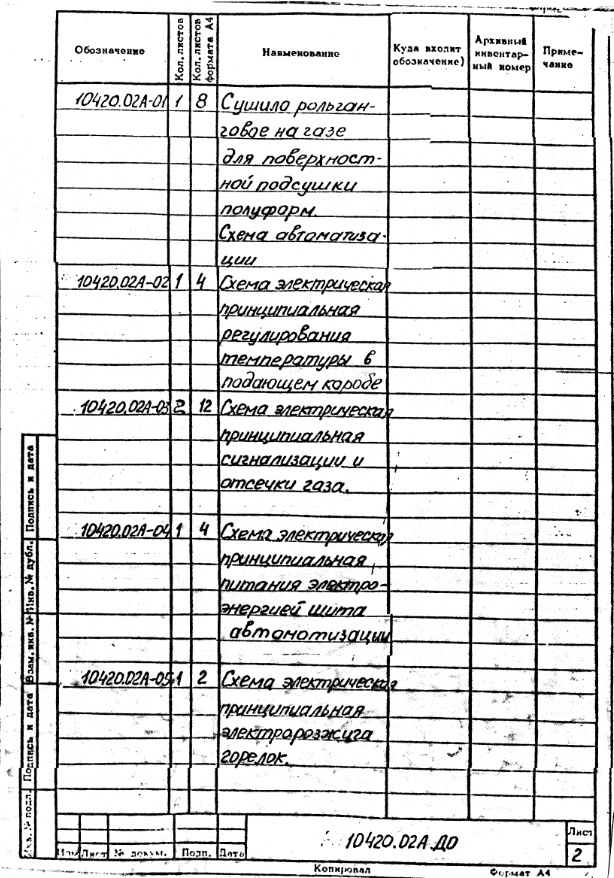 Обозначение Кол. листов Кол. листов формата А4 Наименование Куда входит обозначение) Архивный инвентар- ный номер Приме- чание
10420.02А-01 1 8 Сушило рольган-
говое на газе
для поверхност-
ной подсушки
полуформ.
Схема автоматиза-
ции
10420.02А-02 1 4 Схема электрическая
принципиальная
регулирования
температуры в
подающем коробе
10420.02А-03 2 12 Схема электрическая
принципиальная
сигнализации и
отсечки газа.
10420.02А-04 1 4 Схема электрическая
принципиальная
питания электро-
энергией щита
автоматизации
10420.02А-05 1 2 Схема электрическая
принципиальная
электророзжига
горелок.
Подпись и дата
Инв. № дубл.
Взам. инв. №
Подпись и дата
Инв. № подл.
Изм Лист № докум. Подп. Дата
10420.02А ДО
Лист
2
Копировал Формат А4